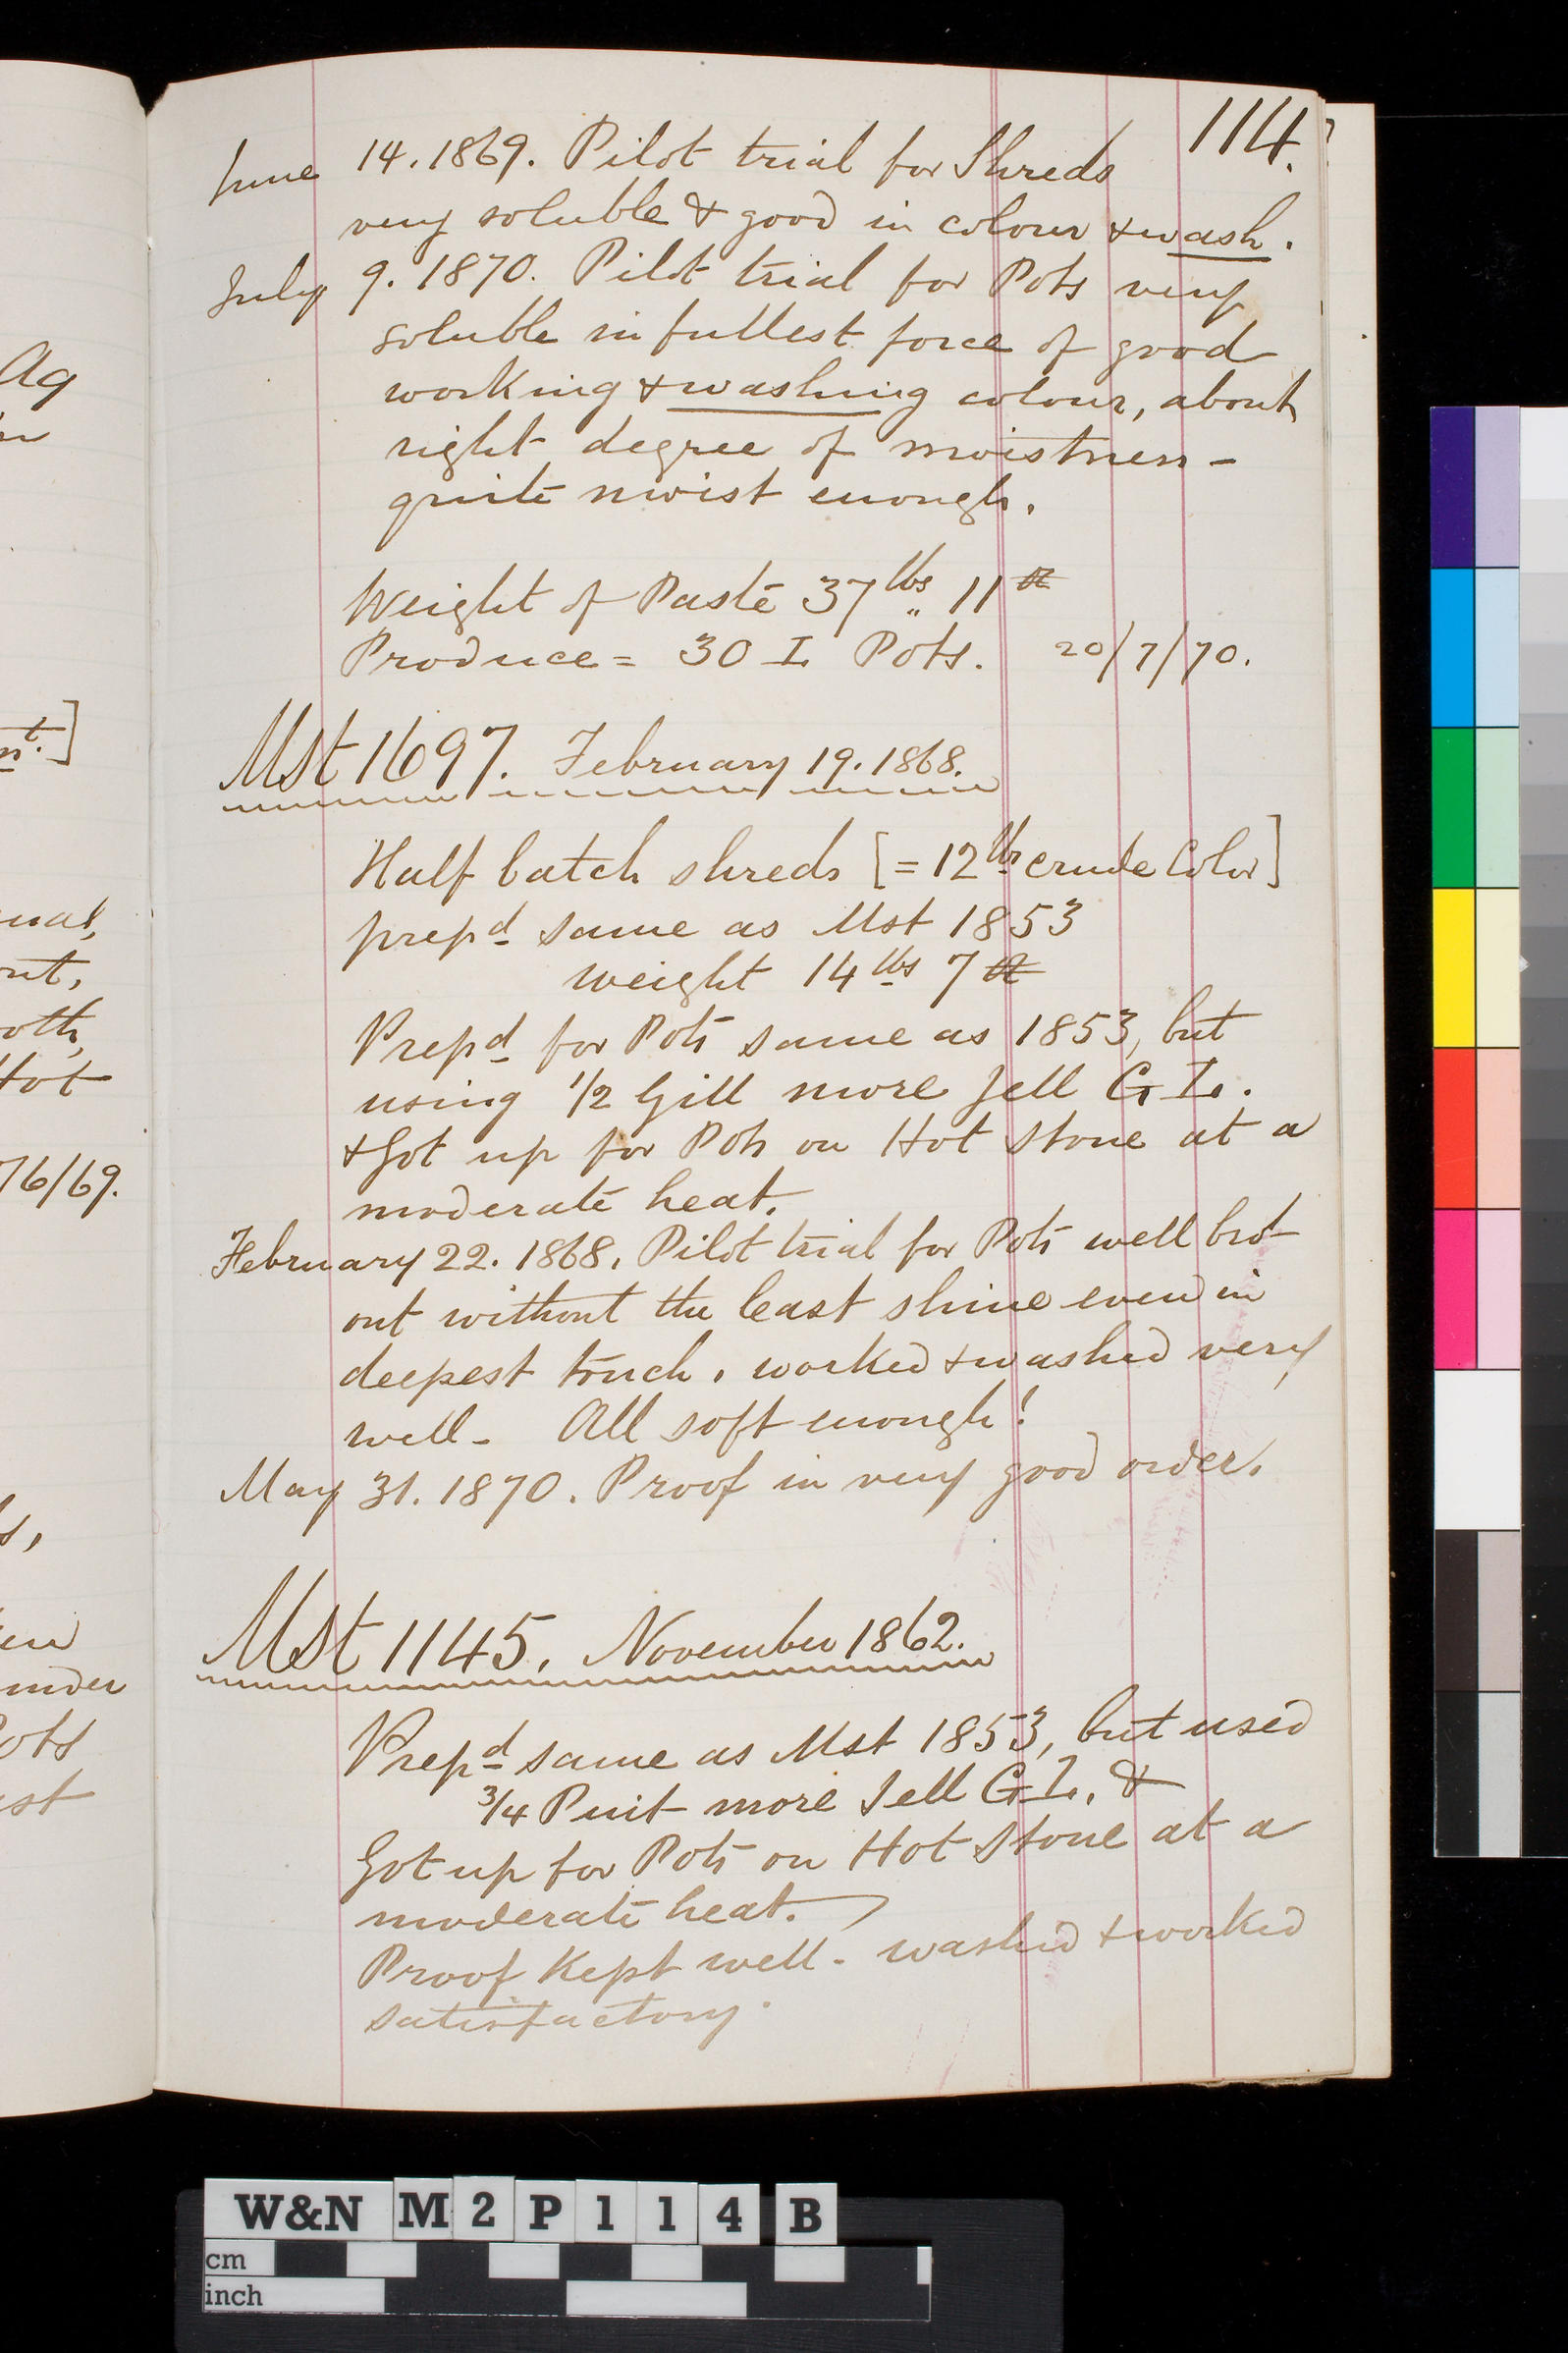 114.
June 14. 1869. Pilot trial for Shreds
very soluble & good in colour & wash.
July 9. 1870. Pilot trial for Pots very
soluble in fullest force of good
working & washing colour, about
right degree of moistness -
quite moist enough.
Weight of Paste 37 lbs 11
Produce = 30 I Pots. 20/7/70.
Mst 1697. February 19. 1868.
Half batch shreds [= 12 lbs crude Color]
prepd same as Mst 1853
weight 14 lbs 7
Prepd for Pots same as 1853, but
using 1/2 Gill more Jell G I.
& Got up for Pots on Hot Stone at a
moderate heat.
February 22. 1868. Pilot trial for Pots well brot
out without the least shine even in
deepest touch. worked & washed very
well - All soft enough!
May 31. 1870. Proof in very good order.
Mst 1145. November 1862.
Prepd same as Mst 1853, but used
3/4 Pint more Jell G I. &
Got up for Pots on Hot Stone at a
moderate heat.
Proof Kept well - washed & worked
satisfactory.
Ag
nt.]
Hot
76/69.
W&N M 2 P 1 1 4 B
cm
inch